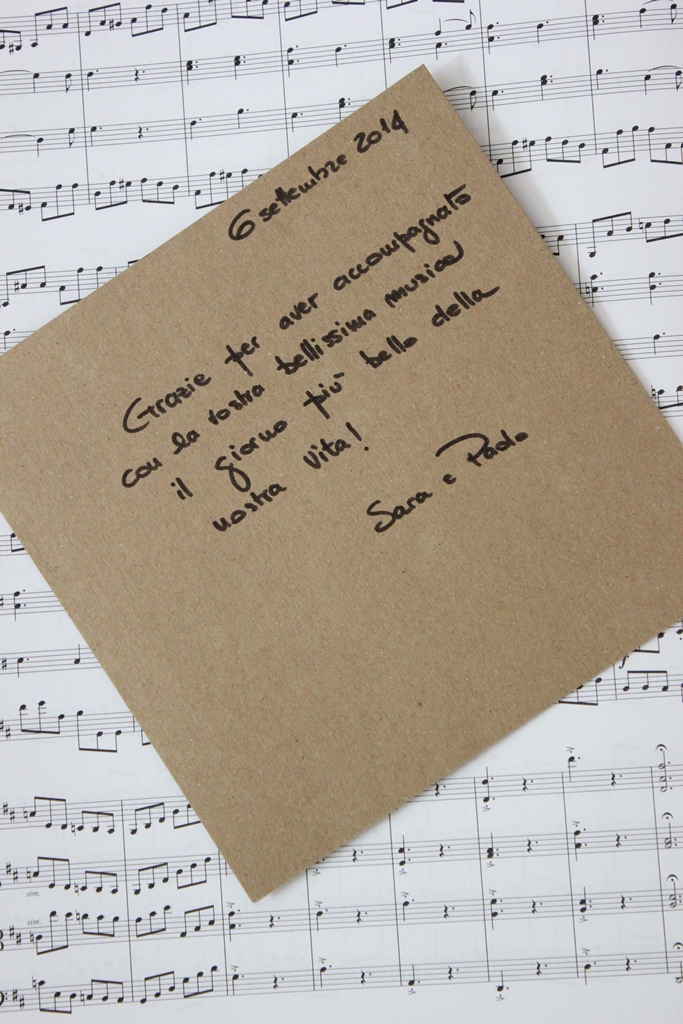 6 settembre 2014
Grazie per aver accompagnato
con la vostra bellissima musica
il giorno più bello della
nostra vita!
Sara e Paolo
sim.
sim.
f